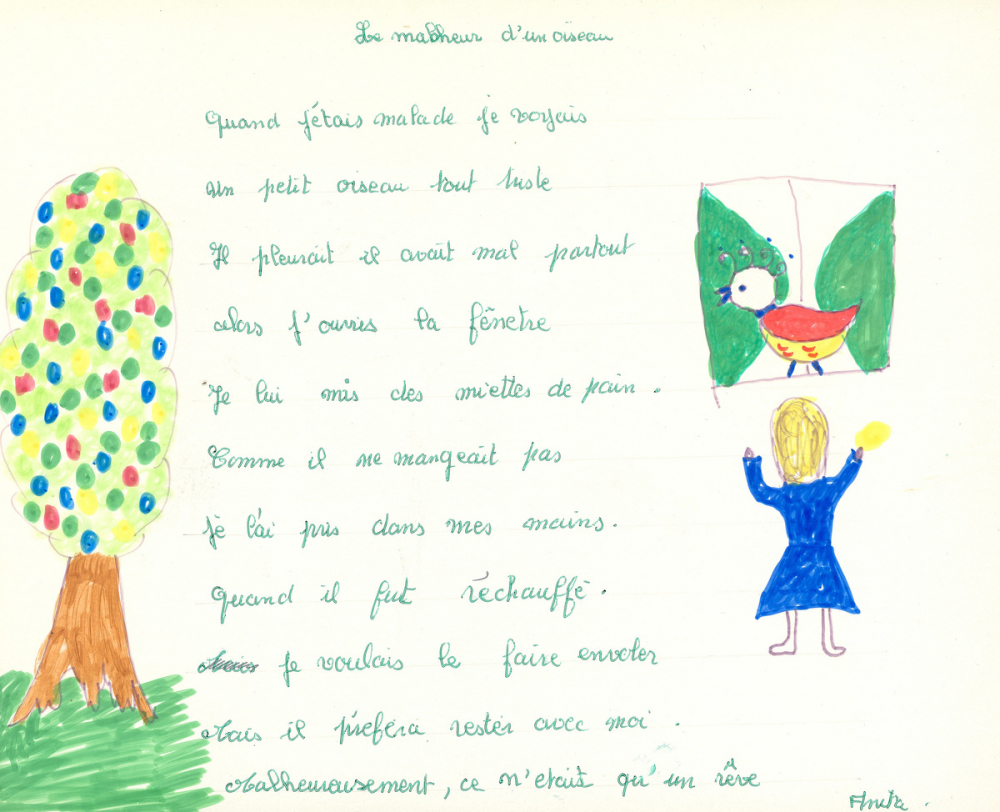 Le malheur d'un oiseau
Quand j'étais malade je voyais
un petit oiseau tout triste
Il pleurait il avait mal partout
alors j'ouvris la fênetre
Je lui mis des miettes de pain.
Comme il ne mangeait pas
je l'ai pris dans mes mains.
Quand il fut réchauffé.
je voulais le faire envoler
Mais il préfera rester avec moi.
Malheureusement, ce n'etait qu'un rêve
Anita